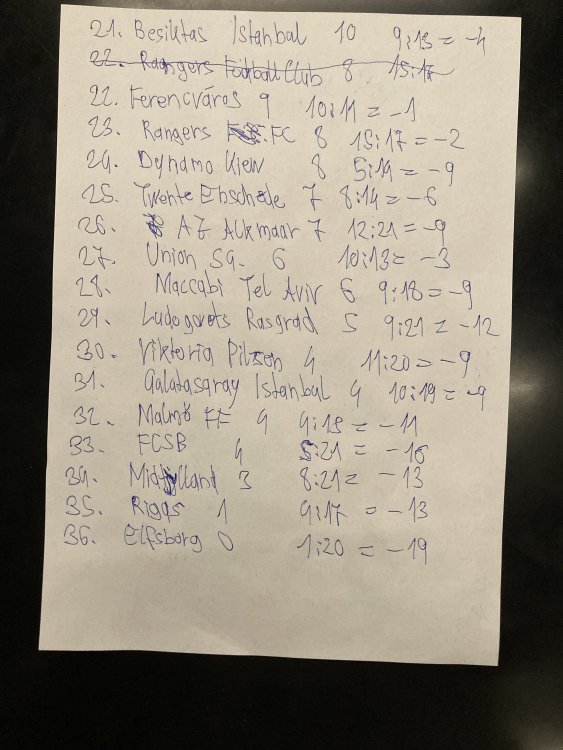 21. Besiktas Istanbul 10 9:13 = -4
22. Raangers Football Club 8 15:17
22. Ferencváros 9 10:11 = -1
23. Rangers FC 8 15:17 = -2
24. Dynamo Kiew 8 5:14 = -9
25. Twente Enschede 7 8:14 = -6
26. AZ Alkmaar 7 12:21 = -9
27. Union SG. 6 10:13 = -3
28. Maccabi Tel Aviv 6 9:18 = -9
29. Ludogorets Rasgrad 5 9:21 = -12
30. Viktoria Pilzen 4 11:20 = -9
31. Galatasaray Istanbul 4 10:19 = -9
32. Malmö FF 4 4:15 = -11
33. FCSB 4 5:21 = -16
34. Midtjylland 3 8:21 = -13
35. Rigas 1 4:17 = -13
36. Elfsborg 0 1:20 = -19